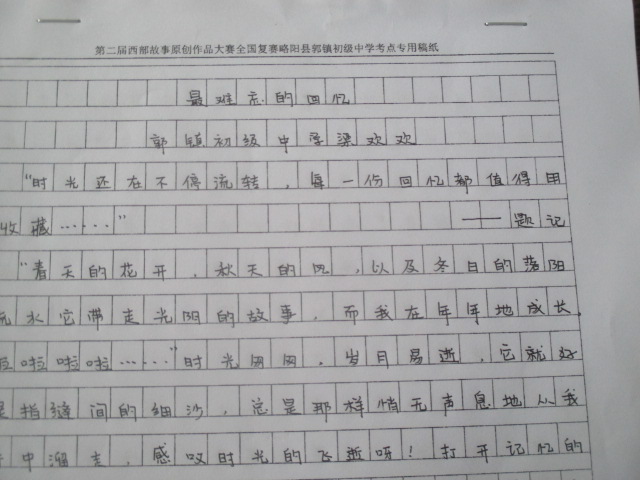 第二届西部故事原创作品大赛全国复赛略阳县郭镇初级中学考点专用稿纸
最难忘的回忆
郭镇初级中学梁欢欢
“时光还在不停流转，每一份回忆都值得用
收藏……”——题记
“春天的花开，秋天的风，以及冬日的落阳
流水它带走光阴的故事，而我在年年地成长，
啦啦啦啦……”时光冈冈，岁月易逝，它就好
是指缝间的细沙，总是那样悄无声息地从我
中溜走，感叹时光的飞逝呀！打开记忆的